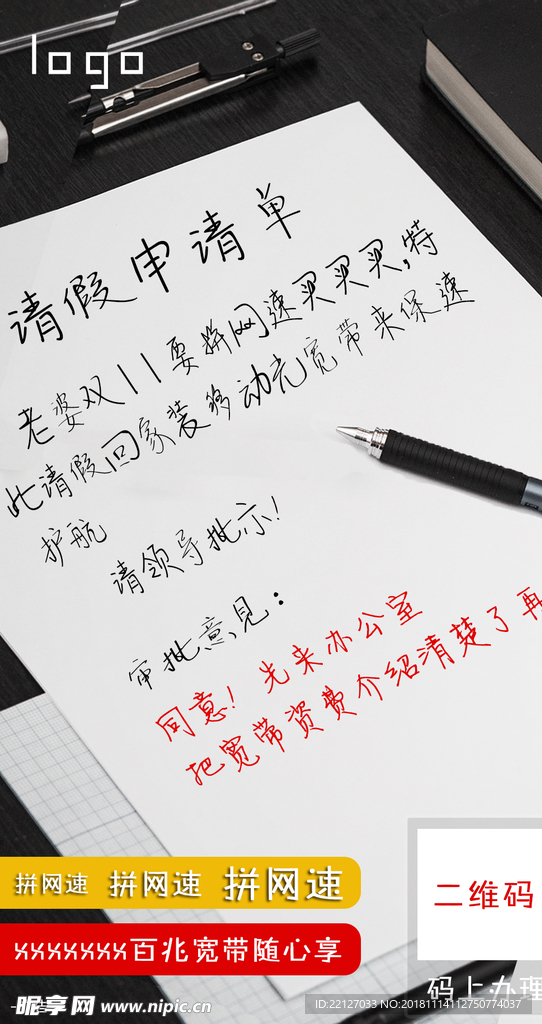 logo
请假申请单
老婆双11要拼网速买买买,特
此请假回家装移动光宽带来保速
护航
请领导批示!
审批意见:
同意!先来办公室
把宽带资费介绍清楚了再
拼网速 拼网速 拼网速
xxxxxxx百兆宽带随心享
二维码
码上办理
昵享网 www.nipic.cn
ID:22127033 NO:20181114112750774037